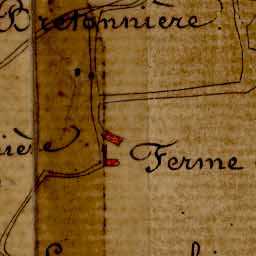 Bretonnière
ière
Ferme